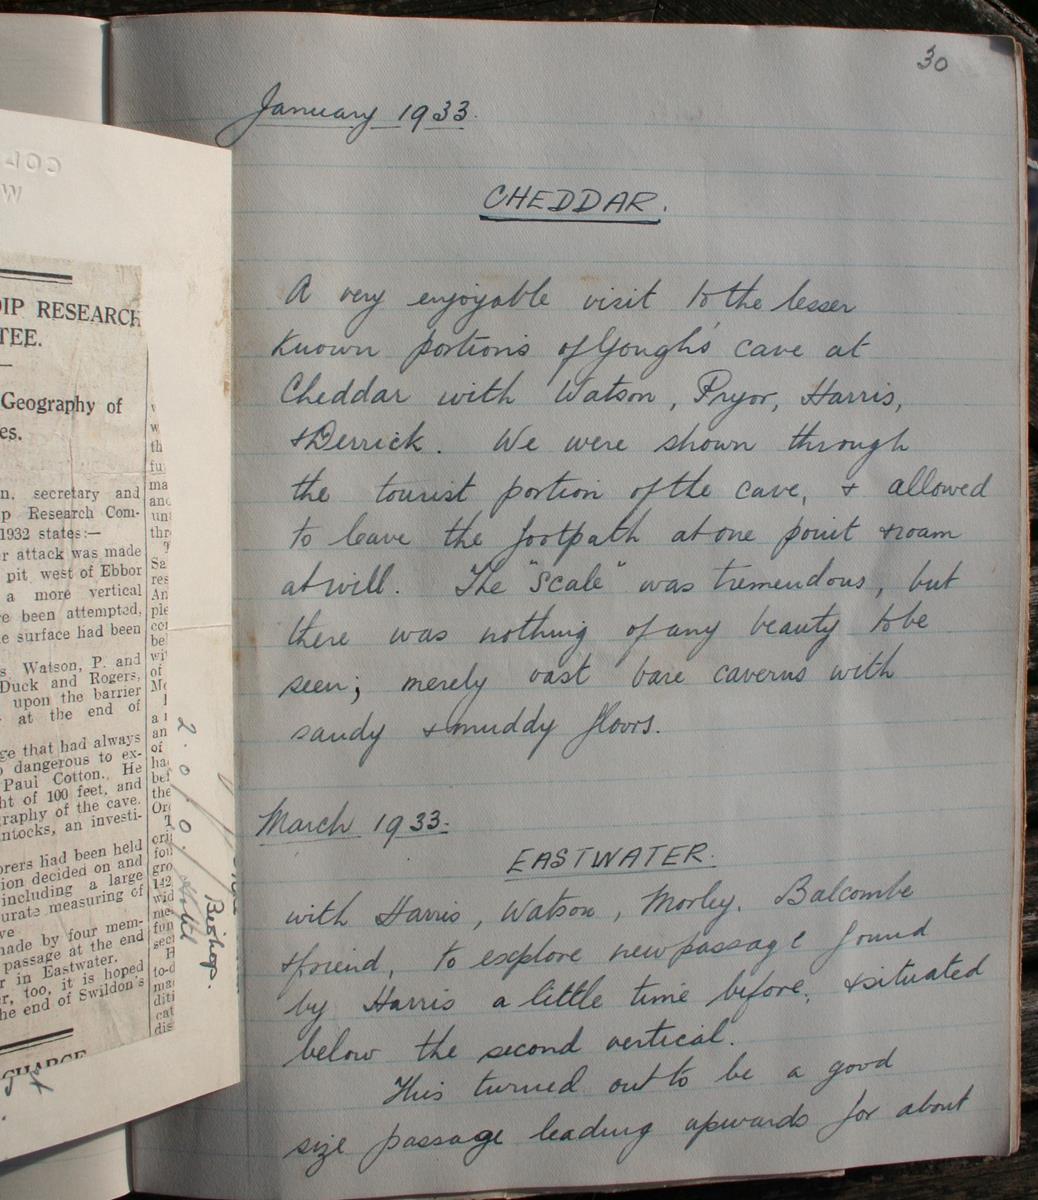 30
January 1933.
CHEDDAR.
A very enjoyable visit to the lesser
known portions of Gough's cave at
Cheddar with Watson, Pryor, Harris,
& Derrick. We were shown through
the tourist portion of the cave, & allowed
to leave the footpath at one point & roam
at will. The "scale" was tremendous, but
there was nothing of any beauty to be
seen; merely vast bare caverns with
sandy & muddy floors.
March 1933.
EASTWATER.
with Harris, Watson, Morley, Balcombe
& friend, to explore new passage found
by Harris a little time before, & situated
below the second vertical.
This turned out to be a good
size passage leading upwards for about
DIP RESEARCH
TEE.
Geography of
es.
n, secretary and
p Research Com-
1932 states:—
r attack was made
pit west of Ebbor
a more vertical
re been attempted,
e surface had been
s Watson, P. and
Duck and Rogers,
upon the barrier
at the end of
ge that had always
o dangerous to ex-
Paul Cotton. He
ht of 100 feet, and
raphy of the cave.
ntocks, an investi-
orers had been held
ion decided on and
including a large
urate measuring of
ve
nade by four mem-
passage at the end
r in Eastwater.
er, too, it is hoped
he end of Swildon's
CHARGE
Bishop.